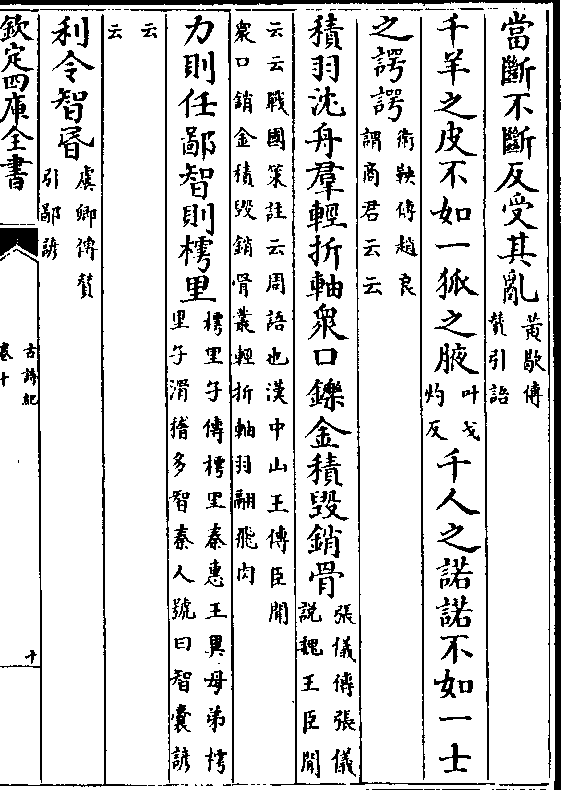 當斷不斷反受其亂黃歇傳贊引語
千羊之皮不如一狐之腋叶弋灼反千人之諾諾不如一士
之諤諤衛鞅傳趙良謂商君云云
積羽沈舟羣輕折軸衆口鑠金積毀銷骨張儀傳張儀説魏王臣聞
云云戰國策註云周語也漢中山王傳臣聞衆口銷金積毀銷骨叢輕折軸羽翮飛肉
力則任鄙智則樗里樗里子傳樗里秦惠王異母弟樗里子滑稽多智秦人號曰智囊諺
云云
利令智昏虞卿傳贊引鄙諺
欽定四庫全書
古詩紀
卷十
十